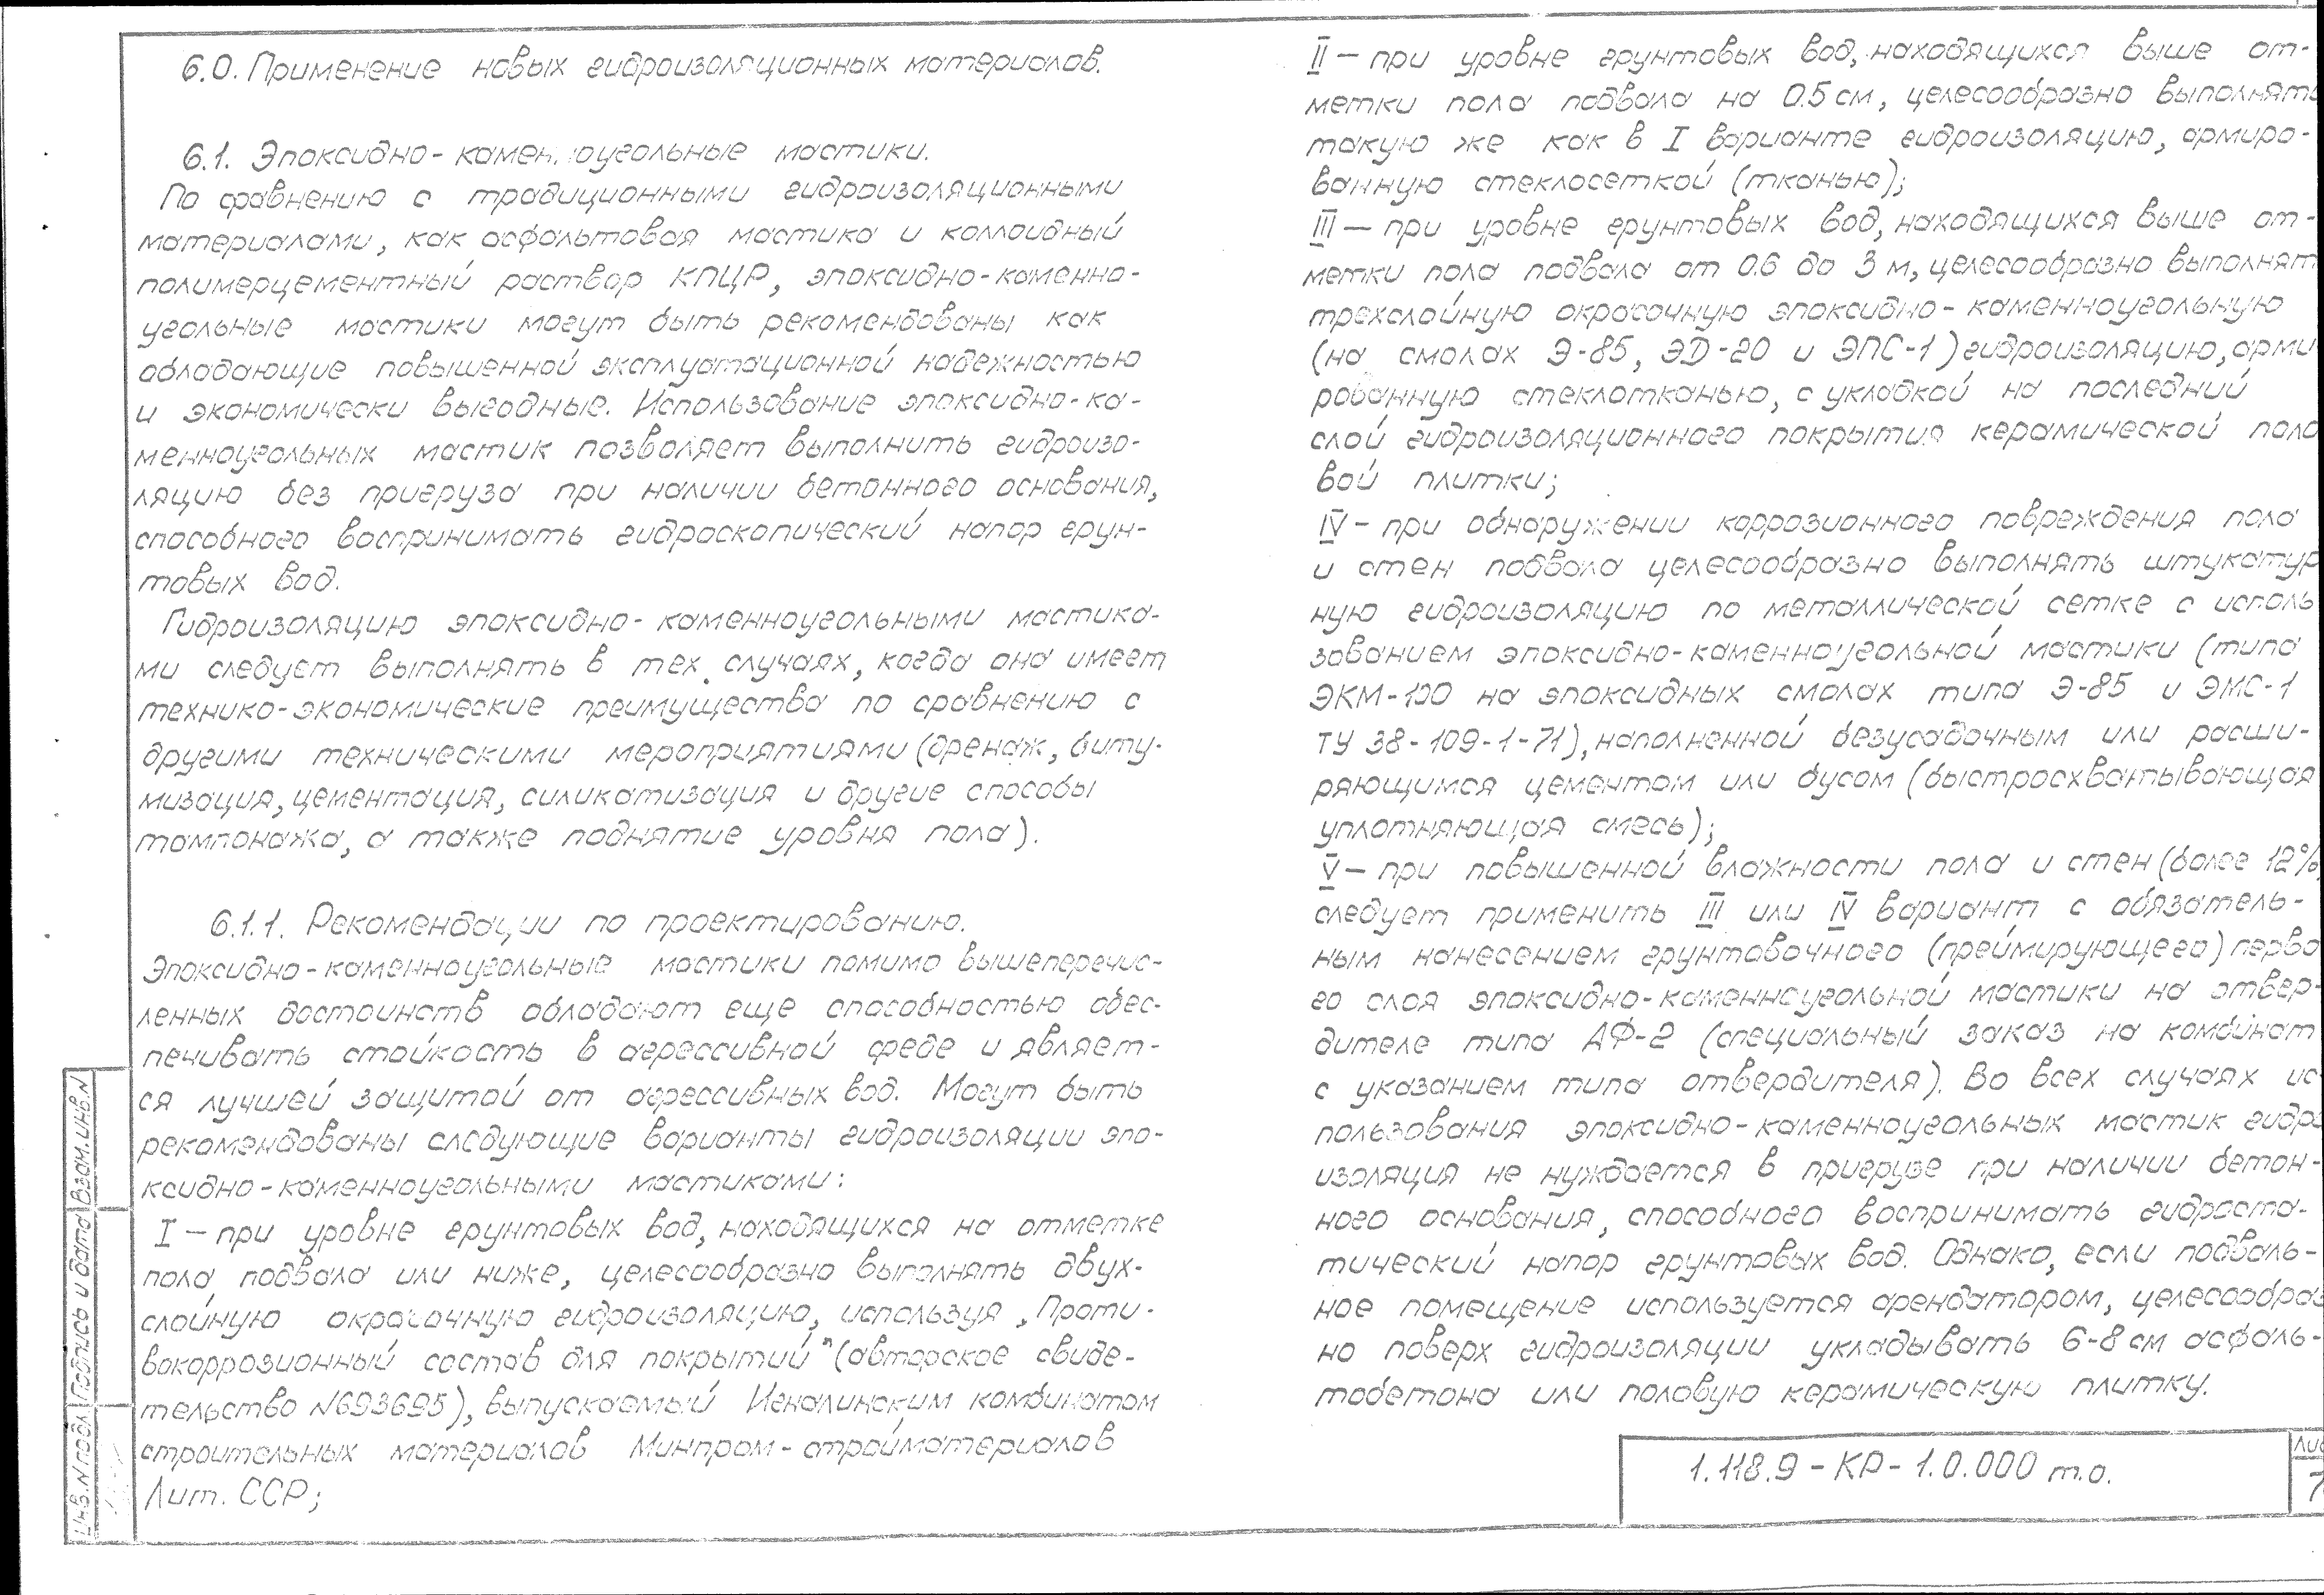 6.0. Применение новых гидроизоляционных материалов.
6.1. Эпоксидно-каменноугольные мастики.
По сравнению с традиционными гидроизоляционными
материалами, как асфальтовая мастика и коллоидный
полимерцементный раствор КПЦР, эпоксидно-каменно-
угольные мастики могут быть рекомендованы как
обладающие повышенной эксплуатационной надежностью
и экономически выгодные. Использование эпоксидно-ка-
менноугольных мастик позволяет выполнить гидроизо-
ляцию без пригруза при наличии бетонного основания,
способного воспринимать гидроскопический напор грун-
товых вод.
Гидроизоляцию эпоксидно-каменноугольными мастика-
ми следует выполнять в тех случаях, когда она имеет
технико-экономические преимущества по сравнению с
другими техническими мероприятиями (дренаж, биту-
мизация, цементация, силикатизация и другие способы
тампонажа, а также поднятие уровня пола).
6.1.1. Рекомендации по проектированию.
Эпоксидно-каменноугольные мастики помимо вышеперечис-
ленных достоинств обладают еще способностью обес-
печивать стойкость в агрессивной среде и являет-
ся лучшей защитой от агрессивных вод. Могут быть
рекомендованы следующие варианты гидроизоляции эпо-
ксидно-каменноугольными мастиками:
I – при уровне грунтовых вод, находящихся на отметке
пола подвала или ниже, целесообразно выполнять двух-
слойную окрасочную гидроизоляцию, используя „Проти-
вокоррозионный состав для покрытий" (авторское свиде-
тельство N693695), выпускаемый Игналинским комбинатом
строительных материалов Минпром-стройматериалов
Лит. ССР;
II – при уровне грунтовых вод, находящихся выше от-
метки пола подвала на 0.5 см, целесообразно выполнять
такую же как в I варианте гидроизоляцию, армиро-
ванную стеклосеткой (тканью);
III – при уровне грунтовых вод, находящихся выше от-
метки пола подвала от 0.6 до 3 м, целесообразно выполнят
трехслойную окрасочную эпоксидно-каменноугольную
(на смолах Э-85, ЭД-20 и ЭПС-1) гидроизоляцию, арми
рованную стеклотканью, с укладкой на последний
слой гидроизоляционного покрытия керамической поло
вой плитки;
IV – при обнаружении коррозионного повреждения пола
и стен подвала целесообразно выполнять штукатур
ную гидроизоляцию по металлической сетке с исполь
зованием эпоксидно-каменноугольной мастики (типа
ЭКМ-100 на эпоксидных смолах типа Э-85 и ЭМС-1
ТУ 38-109-1-71), наполненной безусадочным или расши-
ряющимся цементом или бусом (быстросхватывающая
уплотняющая смесь);
V – при повышенной влажности пола и стен (более 12%
следует применить III или IV вариант с обязатель-
ным нанесением грунтовочного (преймирующего) перво
го слоя эпоксидно-каменноугольной мастики на отвер-
дителе типа АФ-2 (специальный заказ на комбинат
с указанием типа отвердителя). Во всех случаях ис
пользования эпоксидно-каменноугольных мастик гидро
изоляция не нуждается в пригрузе при наличии бетон-
ного основания, способного воспринимать гидроста-
тический напор грунтовых вод. Однако, если подваль-
ное помещение используется арендатором, целесообраз
но поверх гидроизоляции укладывать 6-8 см асфаль-
тобетона или половую керамическую плитку.
1.118.9 – КР – 1.0.000 т.о.
Лис
7
Инв. N подл
Подпись и дата
Взам. инв. N